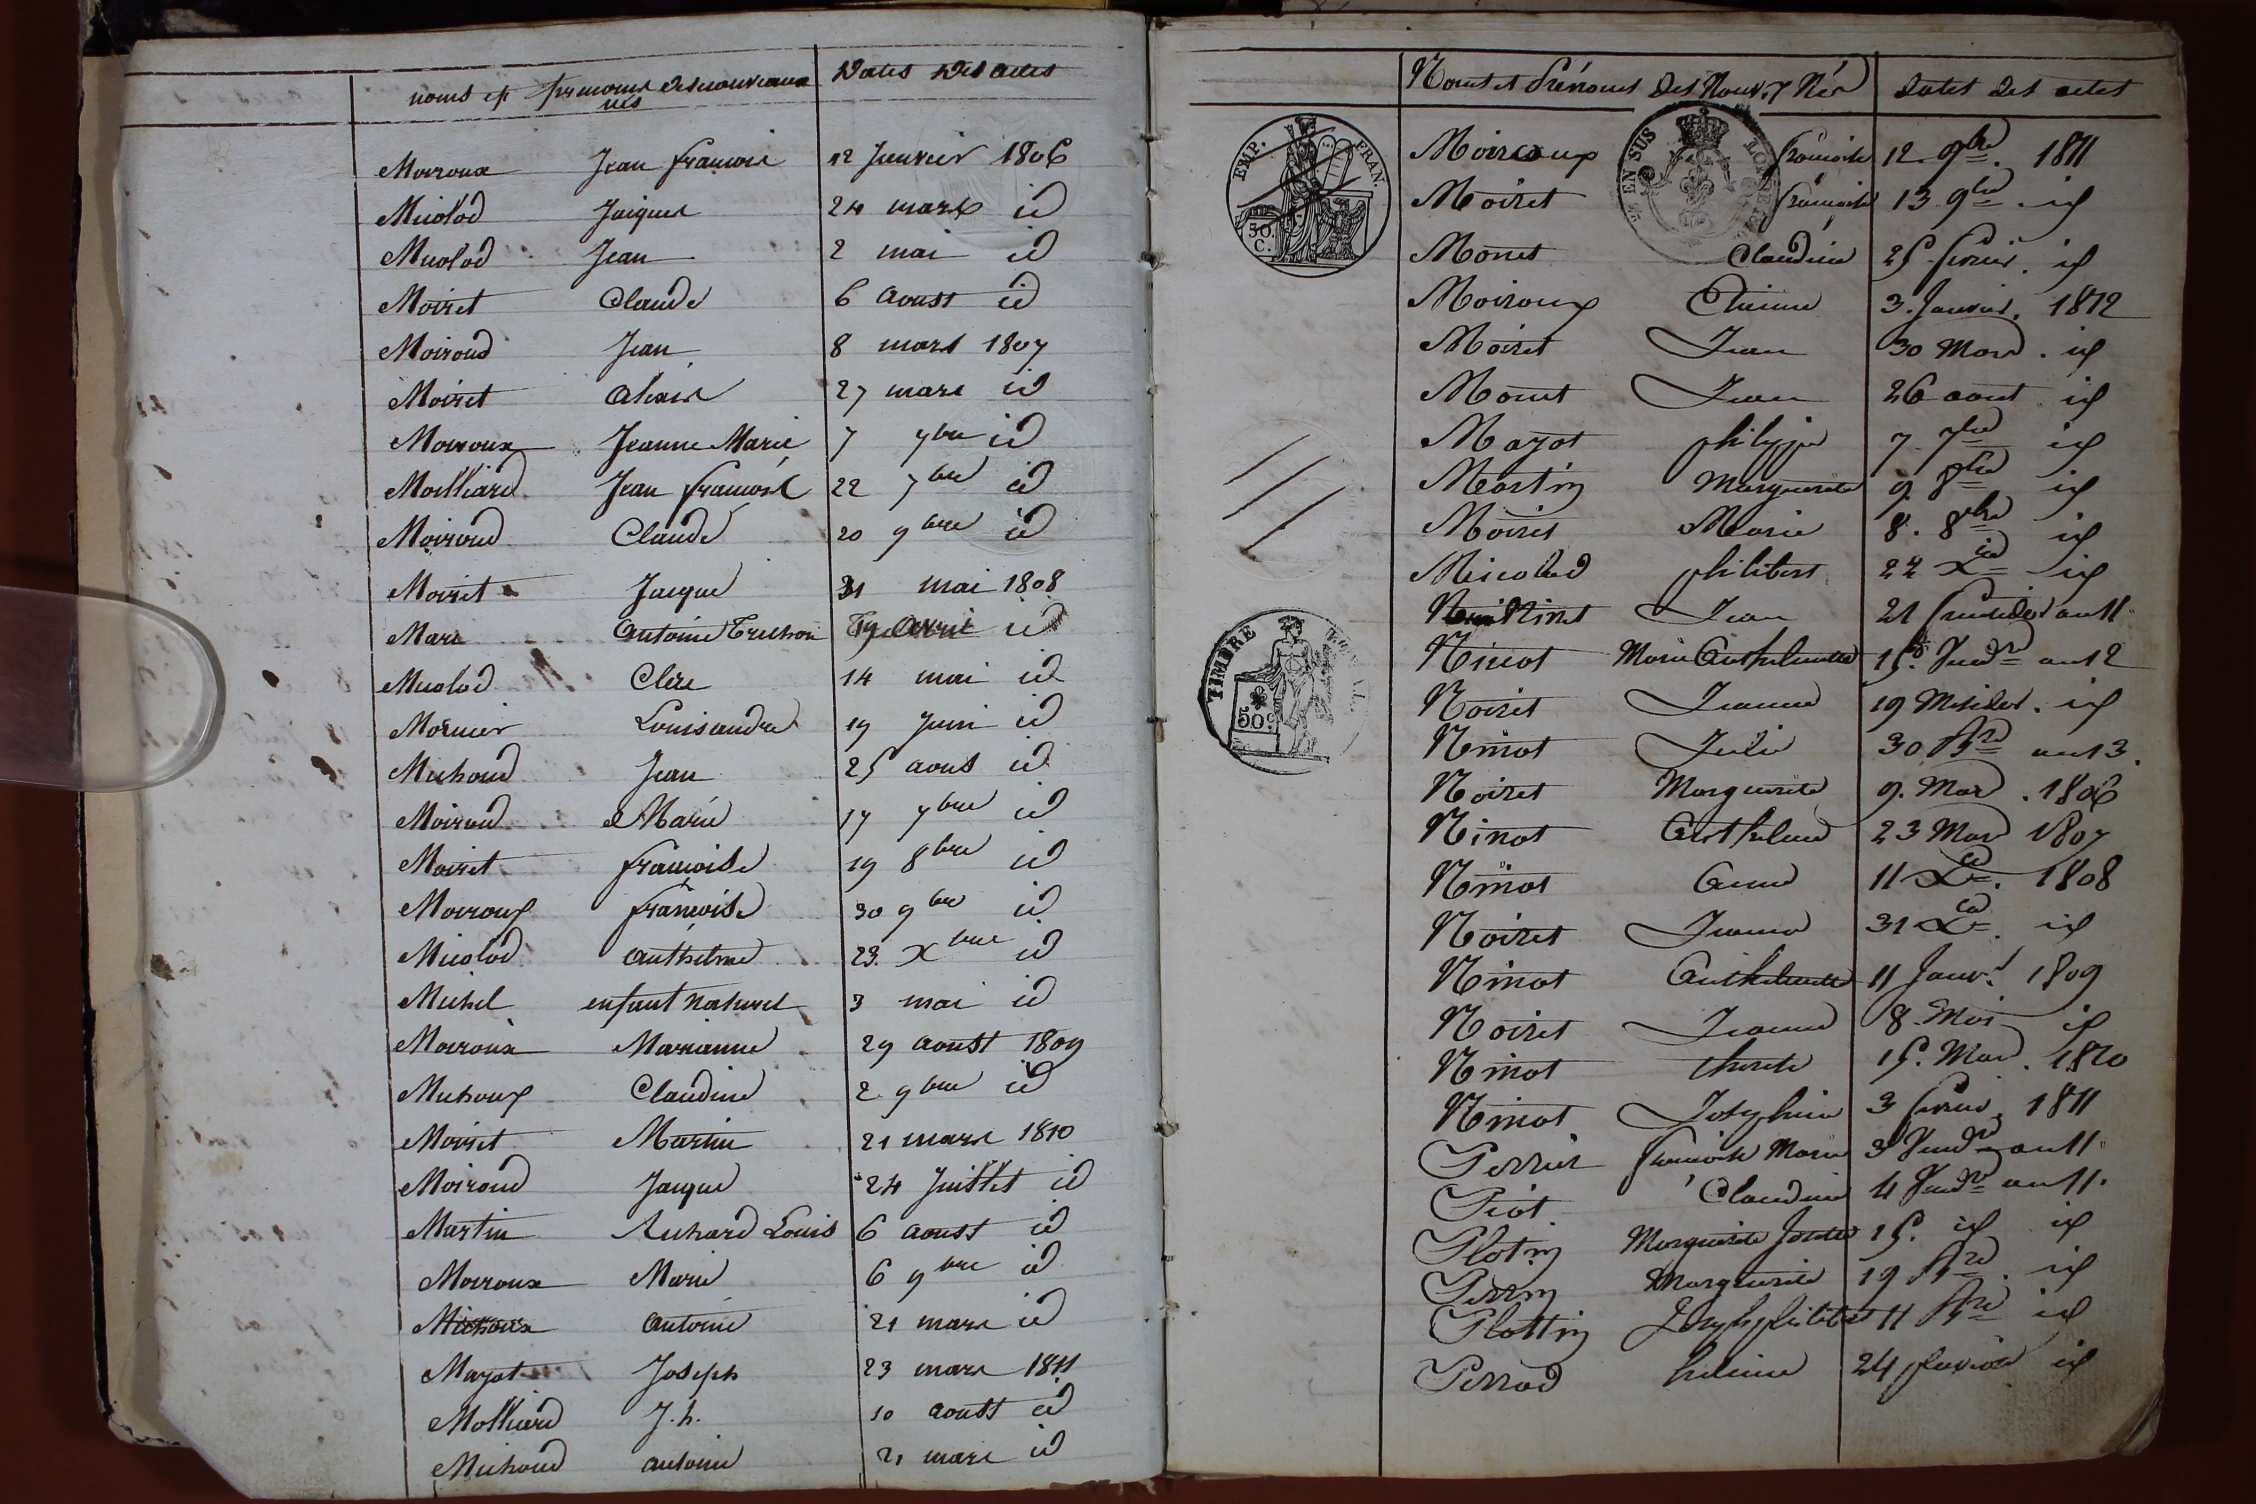 noms et prenoms des nouveaux nés Dates des actes
Moiroux Jean françois 12 Janvier 1806
Micolod Jacques 24 mars id
Micolod Jean 2 mai id
Moiret Claude 6 Aoust id
Moiroud Jean 8 mars 1807
Moiret Alexis 27 mars id
Moiroux Jeanne Marie 7 9bre id
Moilliard Jean françois 22 7bre id
Moiroud Claude 20 9bre id
Moiret Jacque 31 mai 1808
Mare Antoine Truchon 19 avril id
Micolod Clere 14 mai id
Mornier Louis andre 19 Juin id
Michoud Jean 25 aout id
Moiroud Marie 17 7bre id
Moiret françoise 19 8bre id
Moiroux françoise 30 9bre id
Micolod anthelme 23 xbre id
Michel enfant naturel 3 mai id
Moiroux Marianne 29 aoust 1809
Michoux Claudine 2 9bre id
Moiret Martin 21 mars 1810
Moiroud Jacque 24 Juillet id
Martin Richard Louis 6 aoust id
Moiroux Marie 6 9bre id
Michoux antoine 21 mars id
Mayot Joseph 23 mars 1811
Molliard J.h. 10 aoust id
Michoud antoine 21 mars id
Noms et Prénoms des Nouv. Nés dates des actes
EMP. FRAN.
50
C.
EN SUS
Moiroux françoise 12. 9bre. 1811
Moiret françoise 13. 9bre. id
Moiret Claudine 25 fevrier. id
Moiroux Etienne 3. Janvier. 1812
Moiret Jean 30 Mars. id
Moiret Jean 26 aout id
Mayot philippe 7. 7bre id
Martin Marguerite 9. 8bre id
Moiret Marie 8. 8bre id
Micolod philibert 22 Xbre id
Ninot Jean 21 fructidor an 11
Ninot Marie Anthelmette 15. Vend.re an 12
TIMBRE ROYAL.
50c
Noiret Jeanne 19 Messidor. id
Ninot Julie 30 an 13.
Noiret Marguerite 9. Mars. 1806
Ninot Anthelme 23 Mars 1807
Ninot Anne 11 Xbre. 1808
Noiret Jeanne 31 Xbre. id
Ninot Anthelmette 11 Janv.r 1809
Noiret Jeanne 8. Mai id
Ninot therese 15. Mars. 1810
Ninot Josephine 3 fevrier. 1811
Perrier françoise Marie 3 Vend.re an 11
Piot Claudine 4 Vend.re an 11.
Plotin Marguerite Josette 15. id id
Perrin Marguerite 19 id
Plottin Joseph philibert 11 id
Perrod helene 24 pluviose id